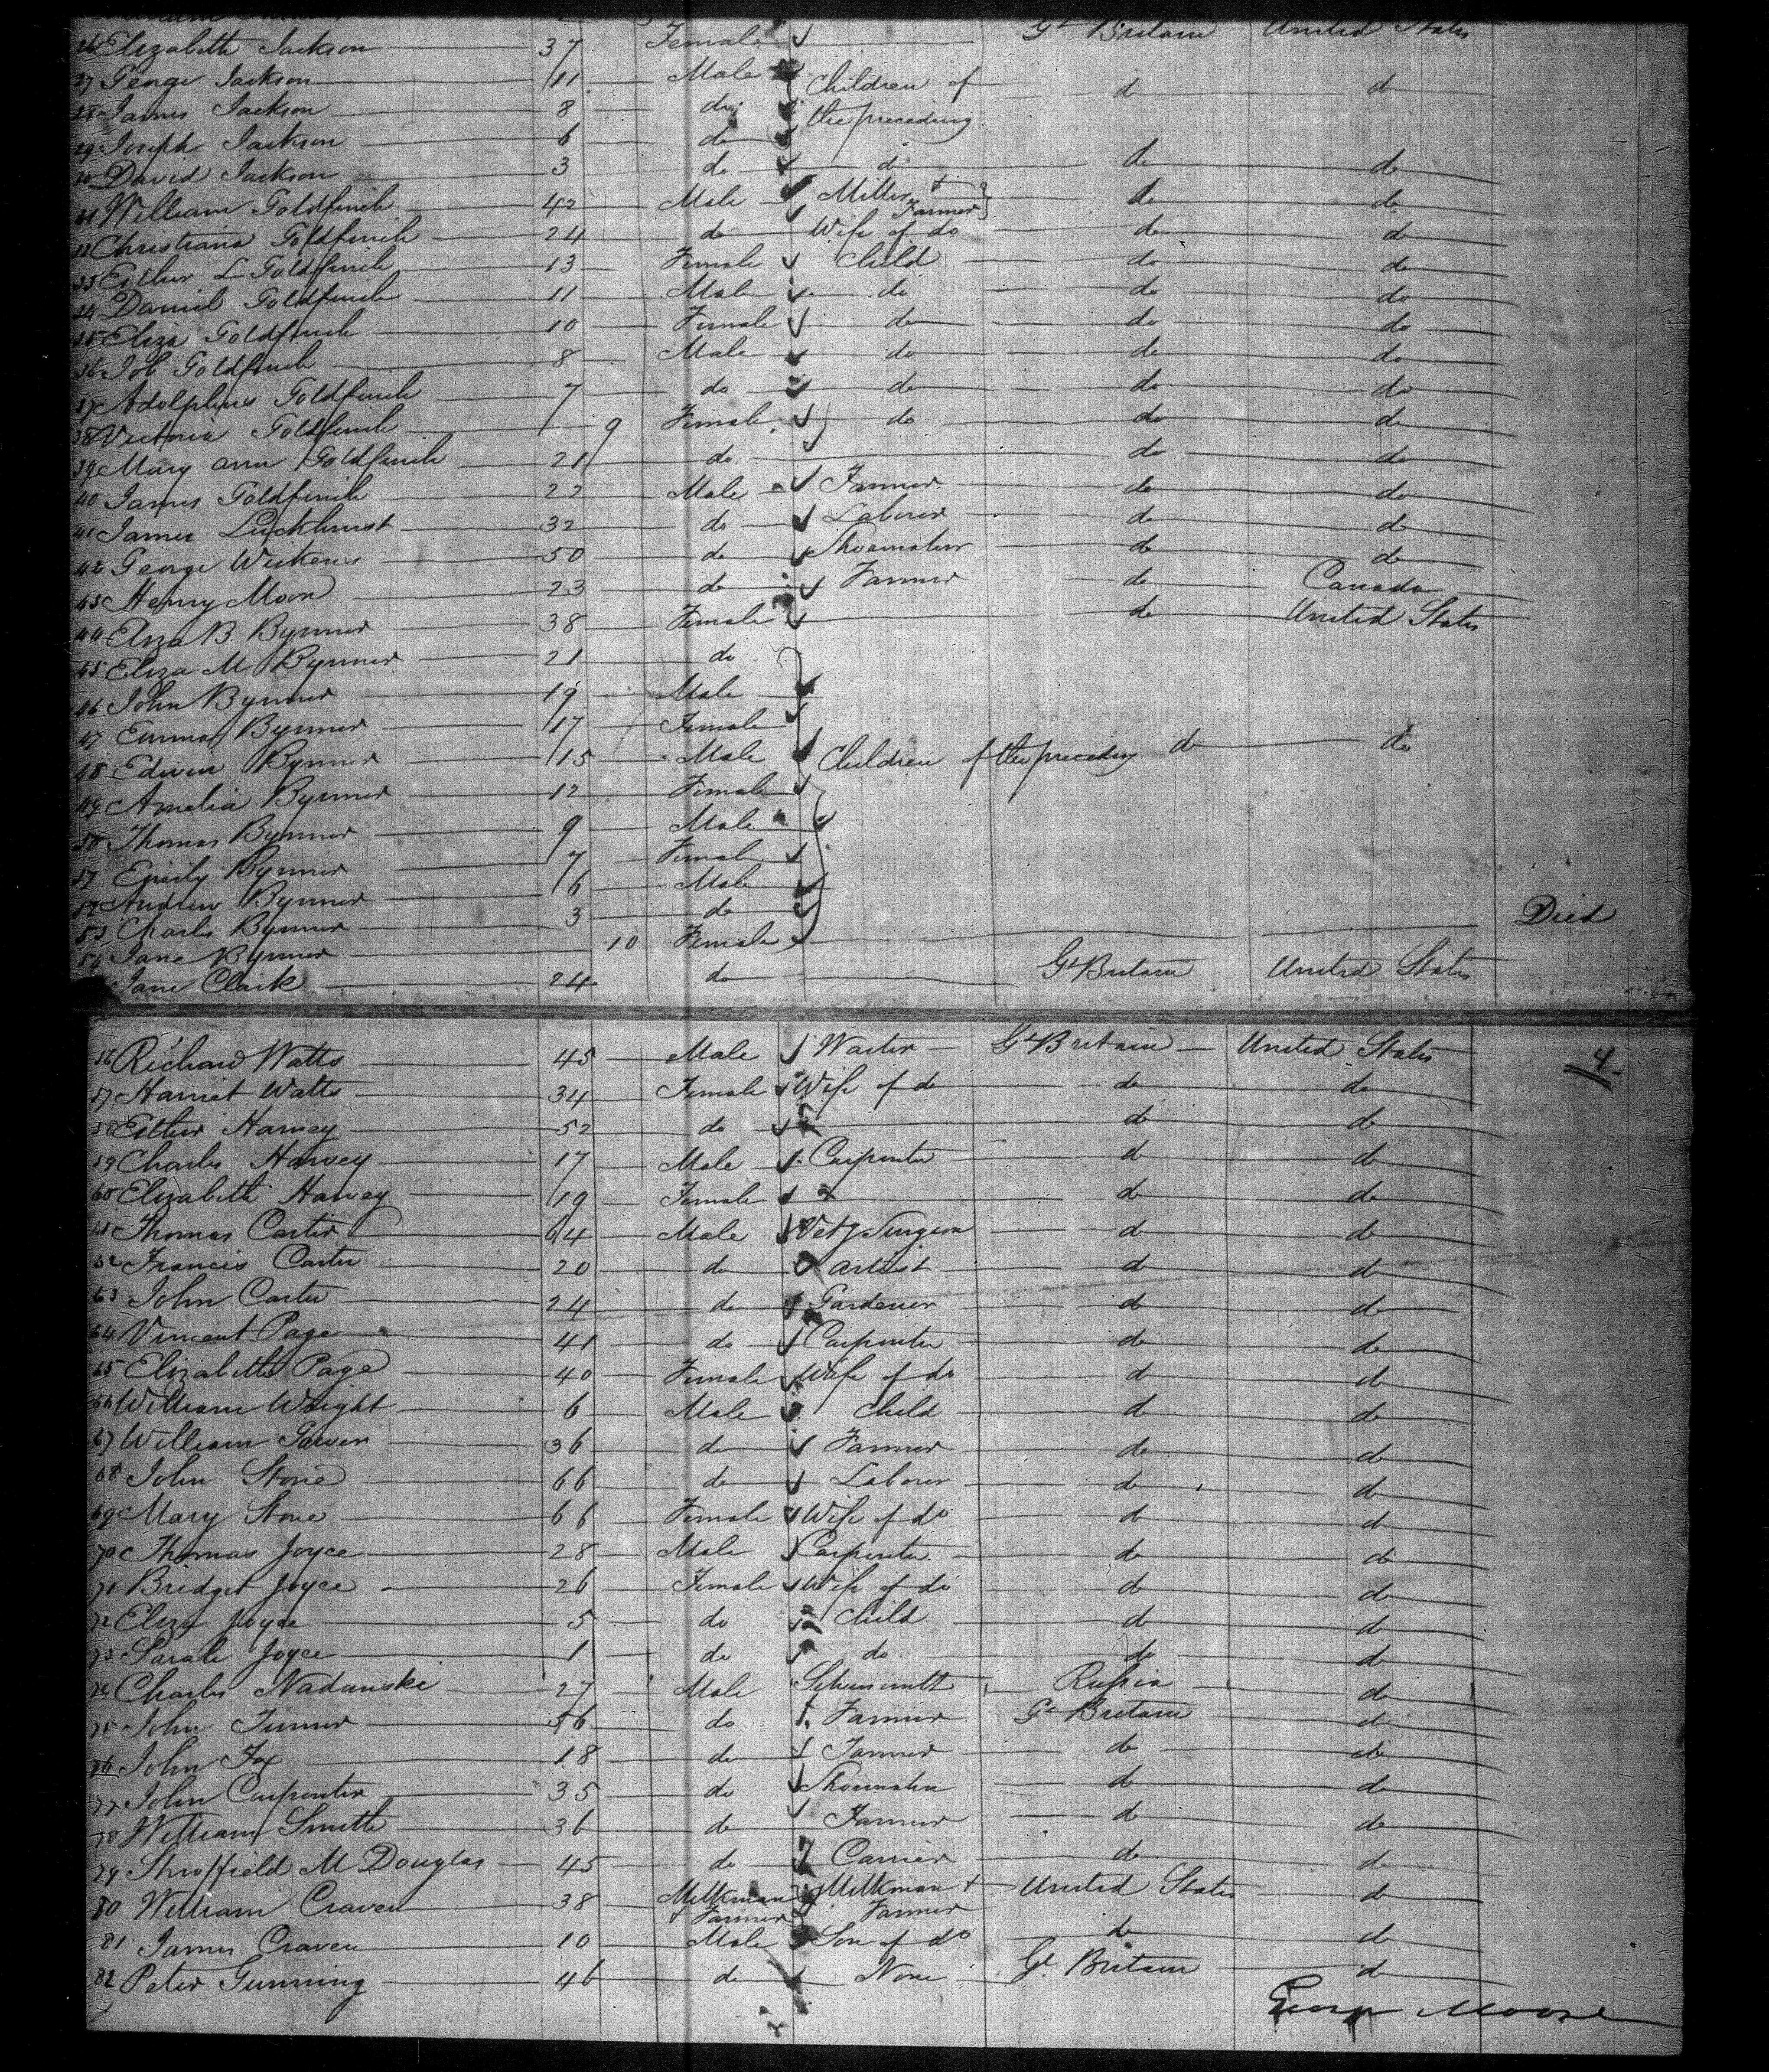 26 Elizabeth Jackson 37 Female Gt Britain United States
27 George Jackson 11 Male Children of d d
28 James Jackson 8 do the preceding
29 Joseph Jackson 6 do
30 David Jackson 3 do d do do
31 William Goldfinch 42 Male Miller + Farmer do do
32 Christiana Goldfinch 24 do Wife of do do do
33 Esther L Goldfinch 13 Female Child do do
34 Daniel Goldfinch 11 Male do do do
35 Eliza Goldfinch 10 Female do do do
36 Job Goldfinch 8 Male do do do
37 Adolphus Goldfinch 7 do do do do
38 Victoria Goldfinch 9 Female do do do
39 Mary Ann Goldfinch 21 do do do
40 James Goldfinch 22 Male Farmer do do
41 James Luckhurst 32 do Laborer do do
42 George Wickens 50 do Shoemaker do do
43 Henry Moon 23 do Farmer do Canada
44 Eliza B Bynner 38 Female do United States
45 Eliza M Bynner 21 do
46 John Bynner 19 Male
47 Emma Bynner 17 Female
48 Edwin Bynner 15 Male Children of the preceding do do
49 Amelia Bynner 12 Female
50 Thomas Bynner 9 Male
51 Emily Bynner 7 Female
52 Andrew Bynner 6 Male
53 Charles Bynner 3 do Died
54 Jane Bynner 10 Female
Jane Clark 24 do Gt Britain United States
56 Richard Watts 45 Male Waiter Gt Britain United States 4
57 Harriet Watts 34 Female Wife of do do do
58 Esther Harvey 52 do do do
59 Charles Harvey 17 Male Carpenter do do
60 Elizabeth Harvey 19 Female do do
61 Thomas Carter 64 Male Vety Surgeon do do
62 Francis Carter 20 do Artist do do
63 John Carter 24 do Gardener do do
64 Vincent Page 41 do Carpenter do do
65 Elizabeth Page 40 Female Wife of do do do
66 William Wright 6 Male Child do do
67 William 36 do Farmer do do
68 John Stone 66 do Laborer do do
69 Mary Stone 66 Female Wife of do do do
70 Thomas Joyce 28 Male Carpenter do do
71 Bridget Joyce 26 Female Wife of do do do
72 Eliza Joyce 5 do Child do do
73 Sarah Joyce 1 do do do do
74 Charles Nadanske 27 Male Russia do
75 John Turner 56 do Farmer Gt Britain do
76 John Fox 18 do Farmer do do
77 John Carpenter 35 do Shoemaker do do
78 William Smith 36 do Farmer do do
79 M Douglas 45 do Carrier do do
80 William Craven 38 Milkman + Farmer Milkman + Farmer United States do
81 James Craven 10 Male Son of do do do
82 Peter Gunning 46 do None Gt Britain do
George Moore